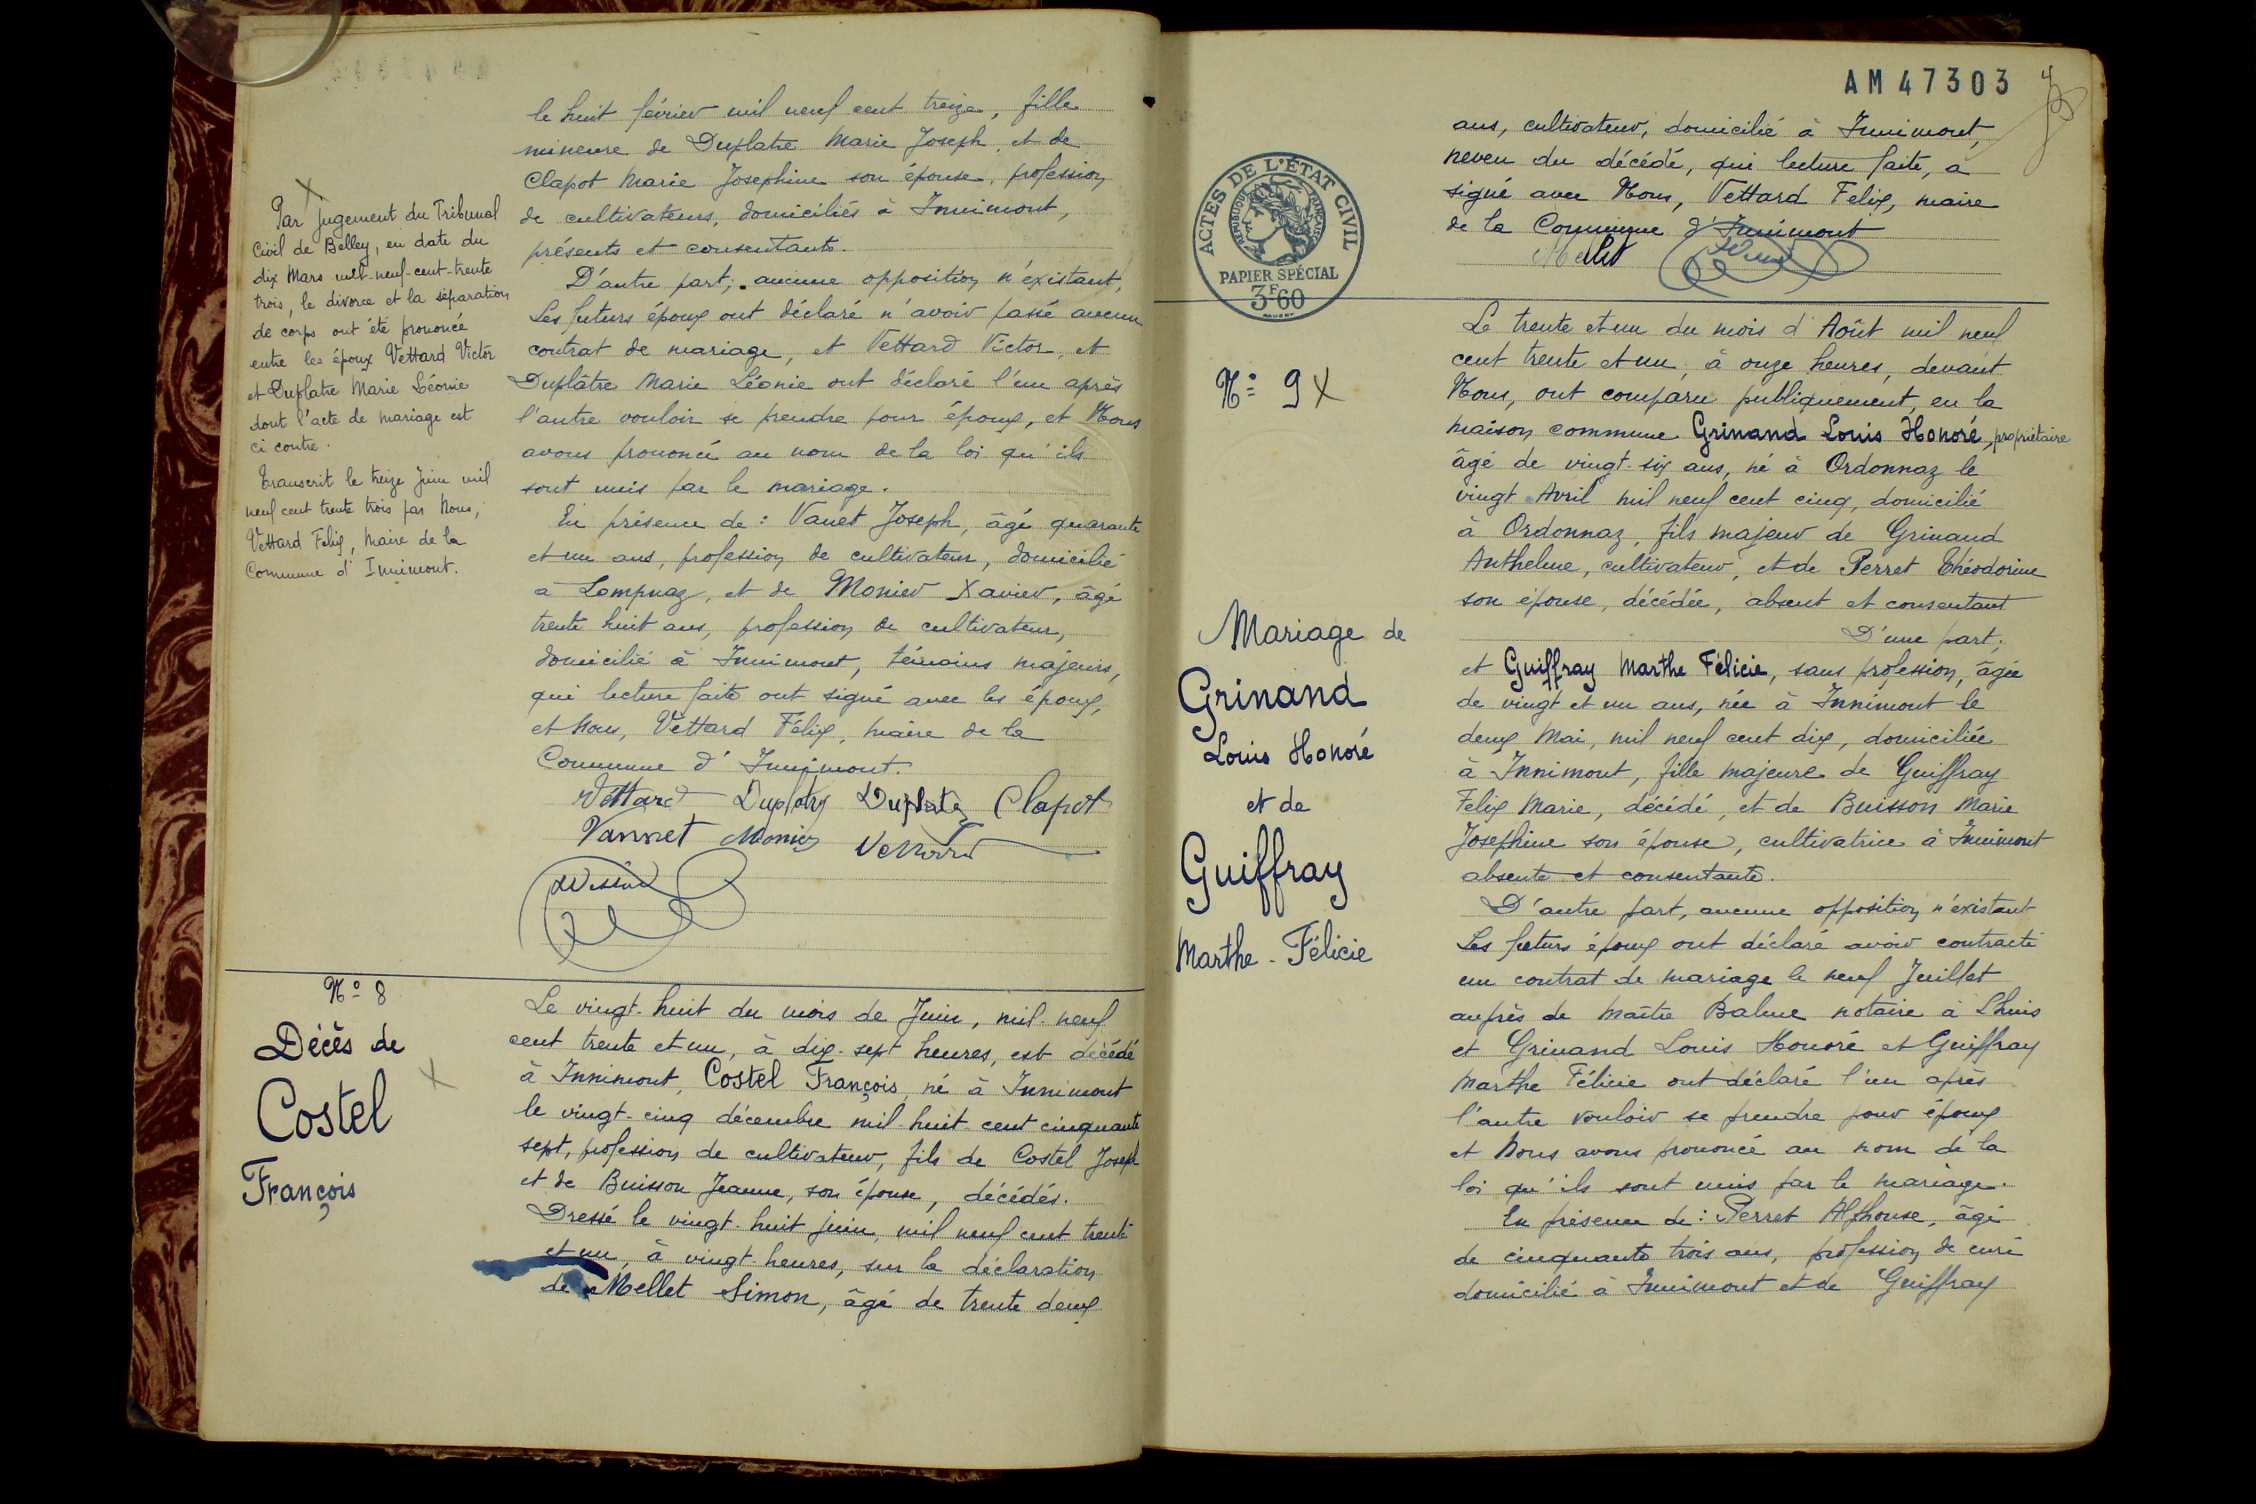 le huit février mil neuf cent treize, fille
mineure de Duplatre Marie Joseph, et de
Clapot Marie Josephine son épouse, profession
de cultivateurs, domiciliés à Innimont,
présents et consentants.
D'autre part; aucune opposition n'éxistant,
Les futurs époux ont déclaré n'avoir passé aucun
contrat de mariage, et Vettard Victor, et
Duplâtre Marie Léonie ont déclaré l'un après
l'autre vouloir se prendre pour époux, et Nous
avons prononcé au nom de la loi qu'ils
sont unis par le mariage.
En présence de : Vanet Joseph, âgé quarante
et un ans, profession de cultivateur, domicilié
à Lompnaz, et de Monier Xavier, âgé
trente huit ans, profession de cultivateur,
domicilié à Innimont, témoins majeurs,
qui lecture faite ont signé avec les époux,
et Nous, Vettard Félix, maire de la
Commune d'Innimont.
Vettard Duplatre Duplatre Clapot
Vannet Monier Vettard
X
Par jugement du Tribunal
Civil de Belley, en date du
dix Mars mil-neuf-cent-trente
trois, le divorce et la séparation
de corps ont été prononcé
entre les époux Vettard Victor
et Duplatre Marie Léonie
dont l'acte de mariage est
ci contre.
Transcrit le treize Juin mil
neuf cent trente trois par Nous,
Vettard Felix, Maire de la
Commune d'Innimont.
N° 8
Décès de
Costel
François
X
Le vingt-huit du mois de Juin, mil-neuf
cent trente et un, à dix-sept heures, est décédé
à Innimont, Costel François, né à Innimont
le vingt-cinq décembre mil-huit-cent cinquante
sept, profession de cultivateur, fils de Costel Joseph
et de Buisson Jeanne, son épouse, décédés.
Dressé le vingt-huit juin, mil neuf cent trente
et un, à vingt heures, sur la déclaration
de Mellet Simon, âgé de trente deux
AM 47303
ans, cultivateur, domicilié à Innimont,
neveu du décédé, qui lecture faite, a
signé avec Nous, Vettard Felix, maire
de la Commune d'Innimont
Mellet
ACTES DE L'ÉTAT CIVIL
RÉPUBLIQUE FRANÇAISE
PAPIER SPÉCIAL
3F60
N° 9 X
Mariage de
Grinand
Louis Honoré
et de
Guiffray
Marthe-Félicie
Le trente et un du mois d'Août mil neuf
cent trente et un, à onze heures, devant
Nous, ont comparu publiquement, en la
maison commune Grinand Louis Honoré, propriétaire
âgé de vingt-six ans, né à Ordonnaz le
vingt Avril mil neuf cent cinq, domicilié
à Ordonnaz, fils majeur de Grinand
Anthelme, cultivateur, et de Perret Théodorine
son épouse, décédée, absent et consentant
D'une part;
et Guiffray Marthe Félicie, sans profession, âgée
de vingt et un ans, née à Innimont le
deux Mai, mil neuf cent dix, domiciliée
à Innimont, fille majeure de Guiffray
Felix Marie, décédé, et de Buisson Marie
Josephine son épouse, cultivatrice à Innimont
absente et consentante.
D'autre part, aucune opposition n'éxistant
Les futurs époux ont déclaré avoir contracté
un contrat de mariage le neuf Juillet
auprès de Maître Balme notaire à Lhuis
et Grinand Louis Honoré et Guiffray
Marthe Félicie ont déclaré l'un après
l'autre vouloir se prendre pour époux
et Nous avons prononcé au nom de la
loi qu'ils sont unis par le mariage.
En présence de : Perret Alphonse, âgé
de cinquante trois ans, profession de curé
domicilié à Innimont et de Guiffray